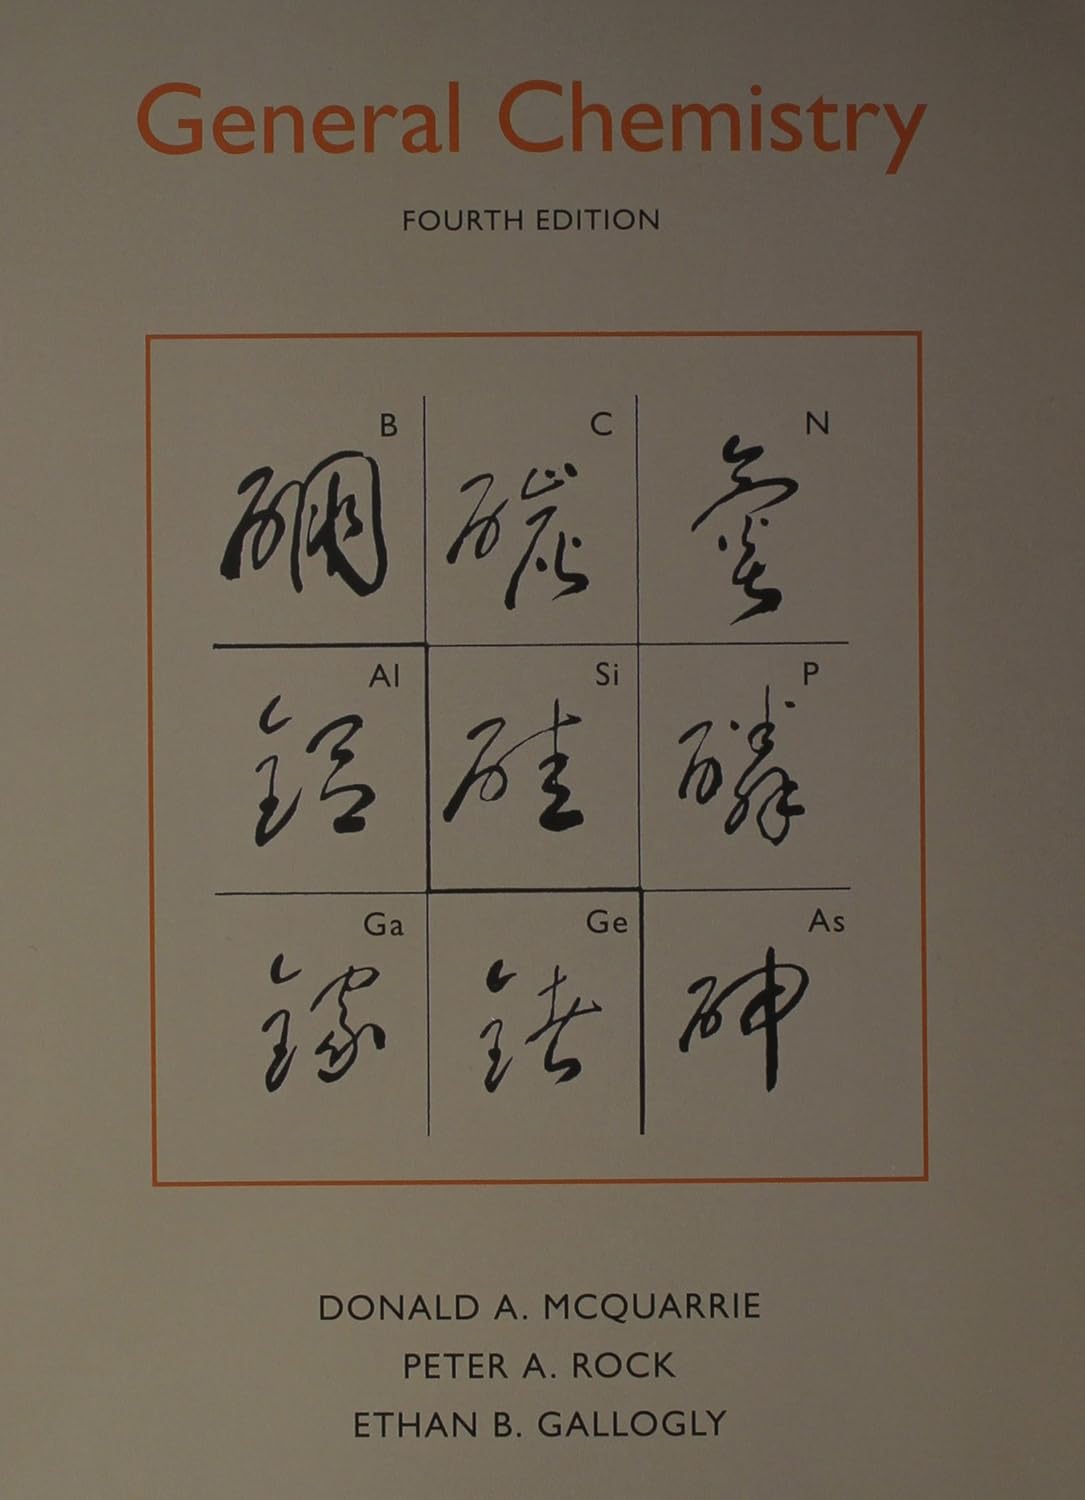 General Chemistry
FOURTH EDITION
B C N
硼 碳 氮
Al Si P
鋁 硅 磷
Ga Ge As
鎵 鍺 砷
DONALD A. MCQUARRIE
PETER A. ROCK
ETHAN B. GALLOGLY